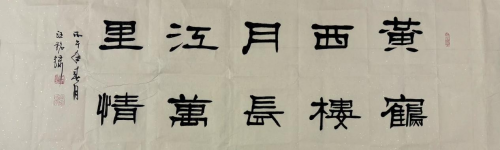 黃鶴
西樓
月長
江萬
里情